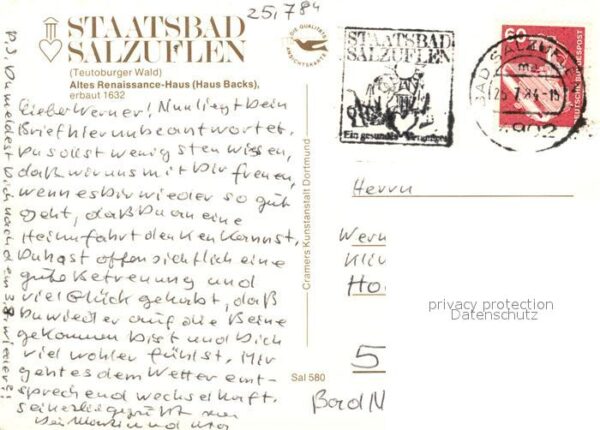 25.7.84
STAATSBAD
SALZUFLEN
(Teutoburger Wald)
Altes Renaissance-Haus (Haus Backs),
erbaut 1632
DIE QUALITÄTS
ANSICHTSKARTE
Lieber Werner! Nun liegt Dein
Brief hier unbeantwortet.
Du sollst wenigsten wissen,
daß wir uns mit Dir freuen,
wenn es Dir wieder so gut
geht, daß Du an eine
Heimfahrt denken kannst.
Du hast offensichtlich eine
gute Betreuung und
viel Glück gehabt, daß
Du wieder auf die Beine
gekommen bist und Dich
viel wohler fühlst. Mir
geht es dem Wetter ent-
sprechend wechselhaft.
Sei herzlich gegrüßt von
P.S. Du meldest Dich nach dem 3.8. wieder!!
Cramers Kunstanstalt Dortmund
Sal 580
STAATSBAD
SALZUFLEN
Ein gesundes Vergnügen
BAD SALZUFLEN
25.7.84-15
4902
60
DEUTSCHE BUNDESPOST
Herrn
Wern
Klin
Ho
5
Bad N
privacy protection
Datenschutz